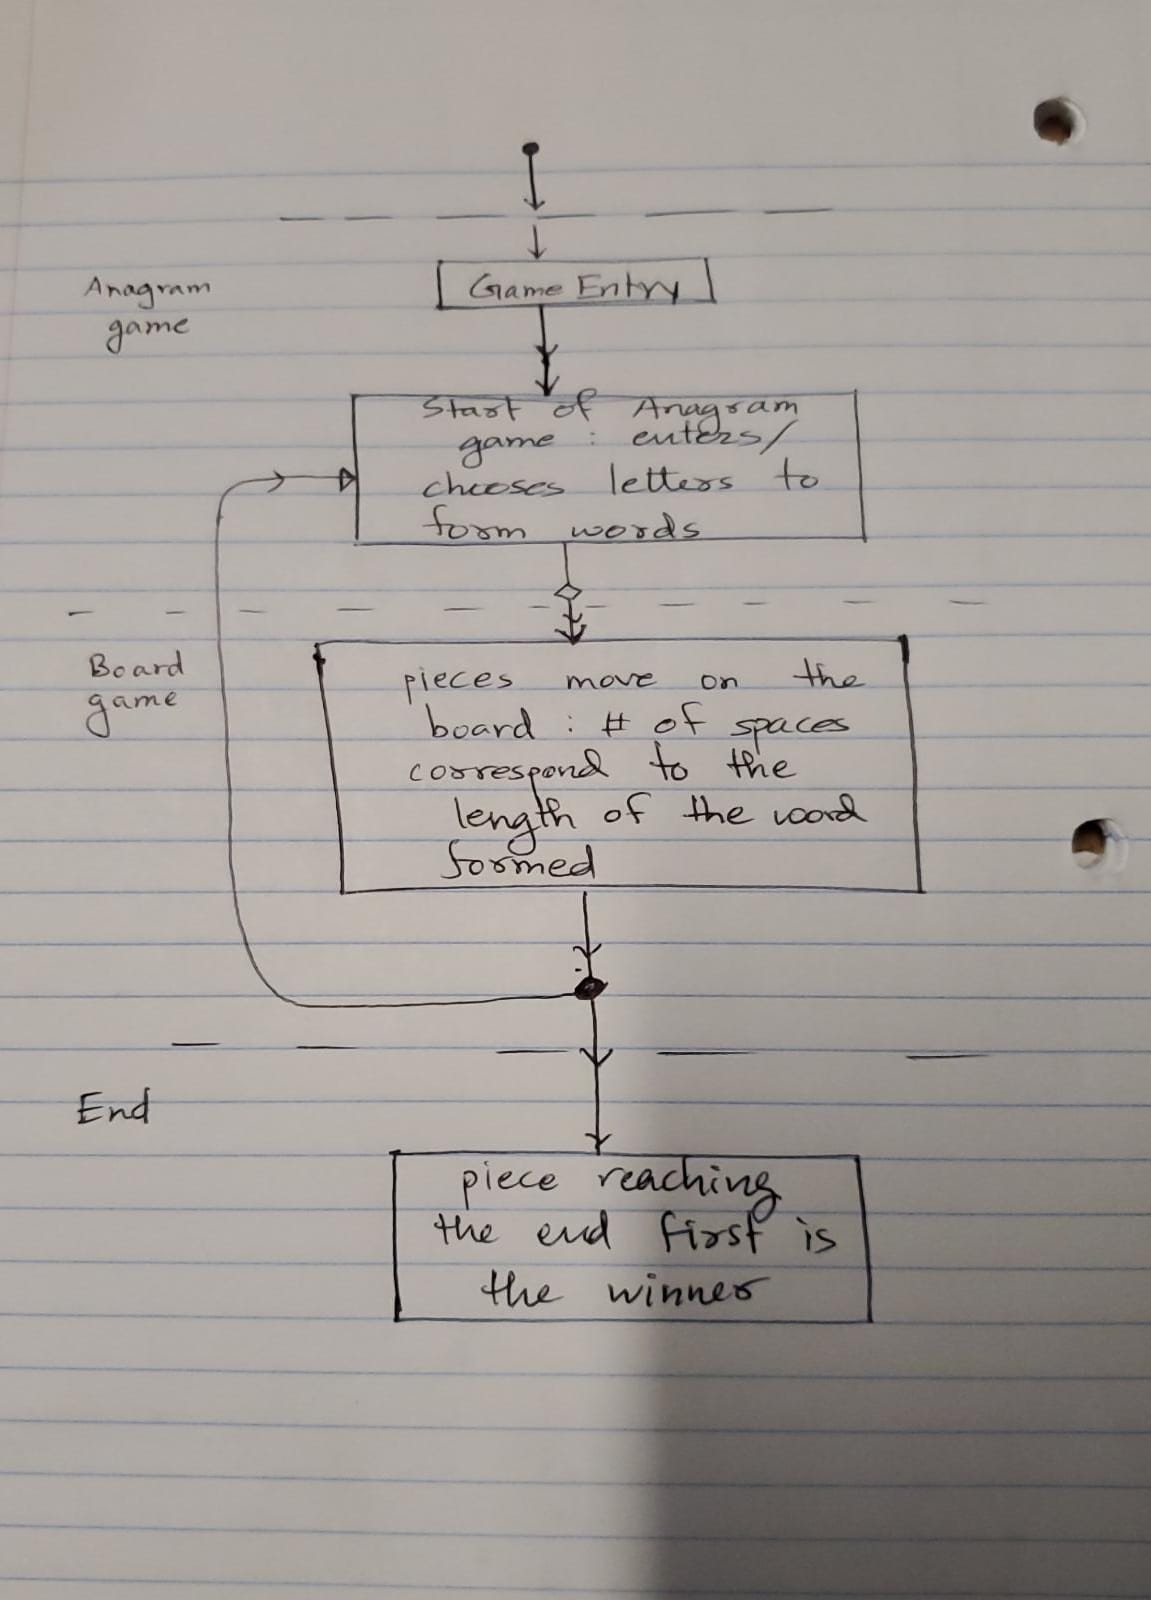 Anagram
game
Game Entry
Start of Anagram
game : enters/
chooses letters to
form words
Board
game
pieces move on the
board : # of spaces
correspond to the
length of the word
formed
End
piece reaching
the end first is
the winner